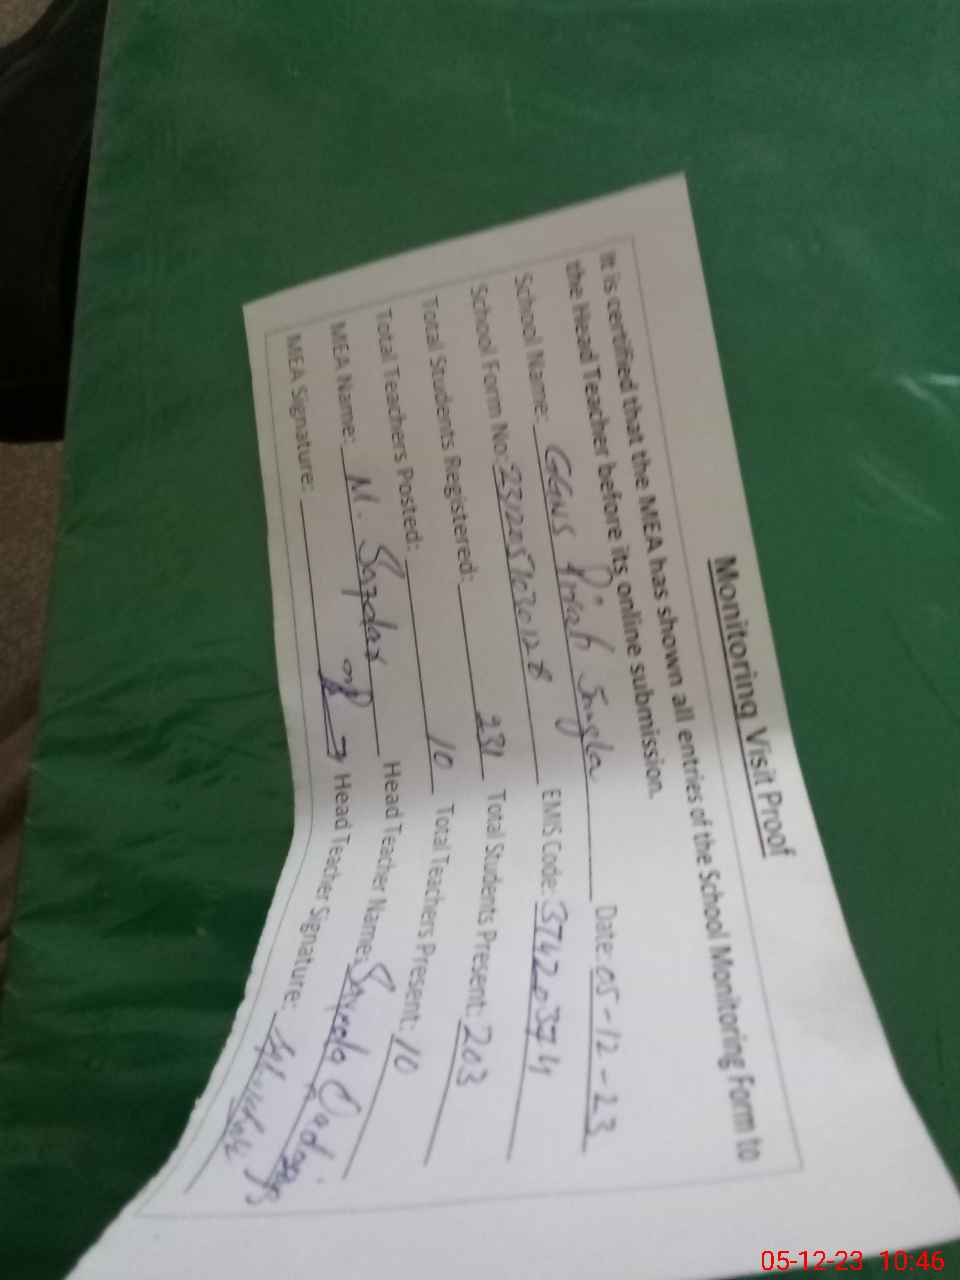 Monitoring Visit Proof
It is certified that the MEA has shown all entries of the School Monitoring Form to
the Head Teacher before its online submission.
School Name: Date: 05-12-23
School Form No: EMIS Code:
Total Students Registered: 231 Total Students Present: 203
Total Teachers Posted: 10 Total Teachers Present: 10
MEA Name: M. Head Teacher Name:
MEA Signature: Head Teacher Signature:
05-12-23 10:46